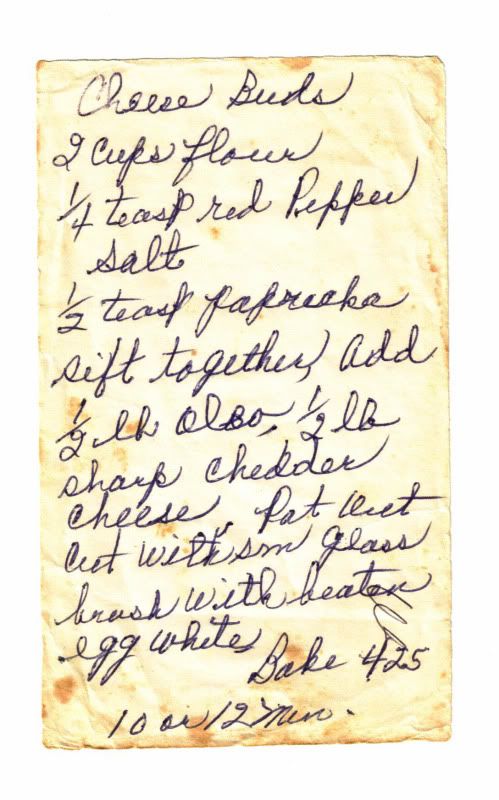 Cheese Buds
2 cups flour
1/4 teasp red Pepper
salt
1/2 teasp papricka
sift together, add
1/2 lb oleo, 1/2 lb
sharp chedder
cheese. Pat out
cut with sm glass
brush with beaten
egg white
Bake 425
10 or 12 Min.